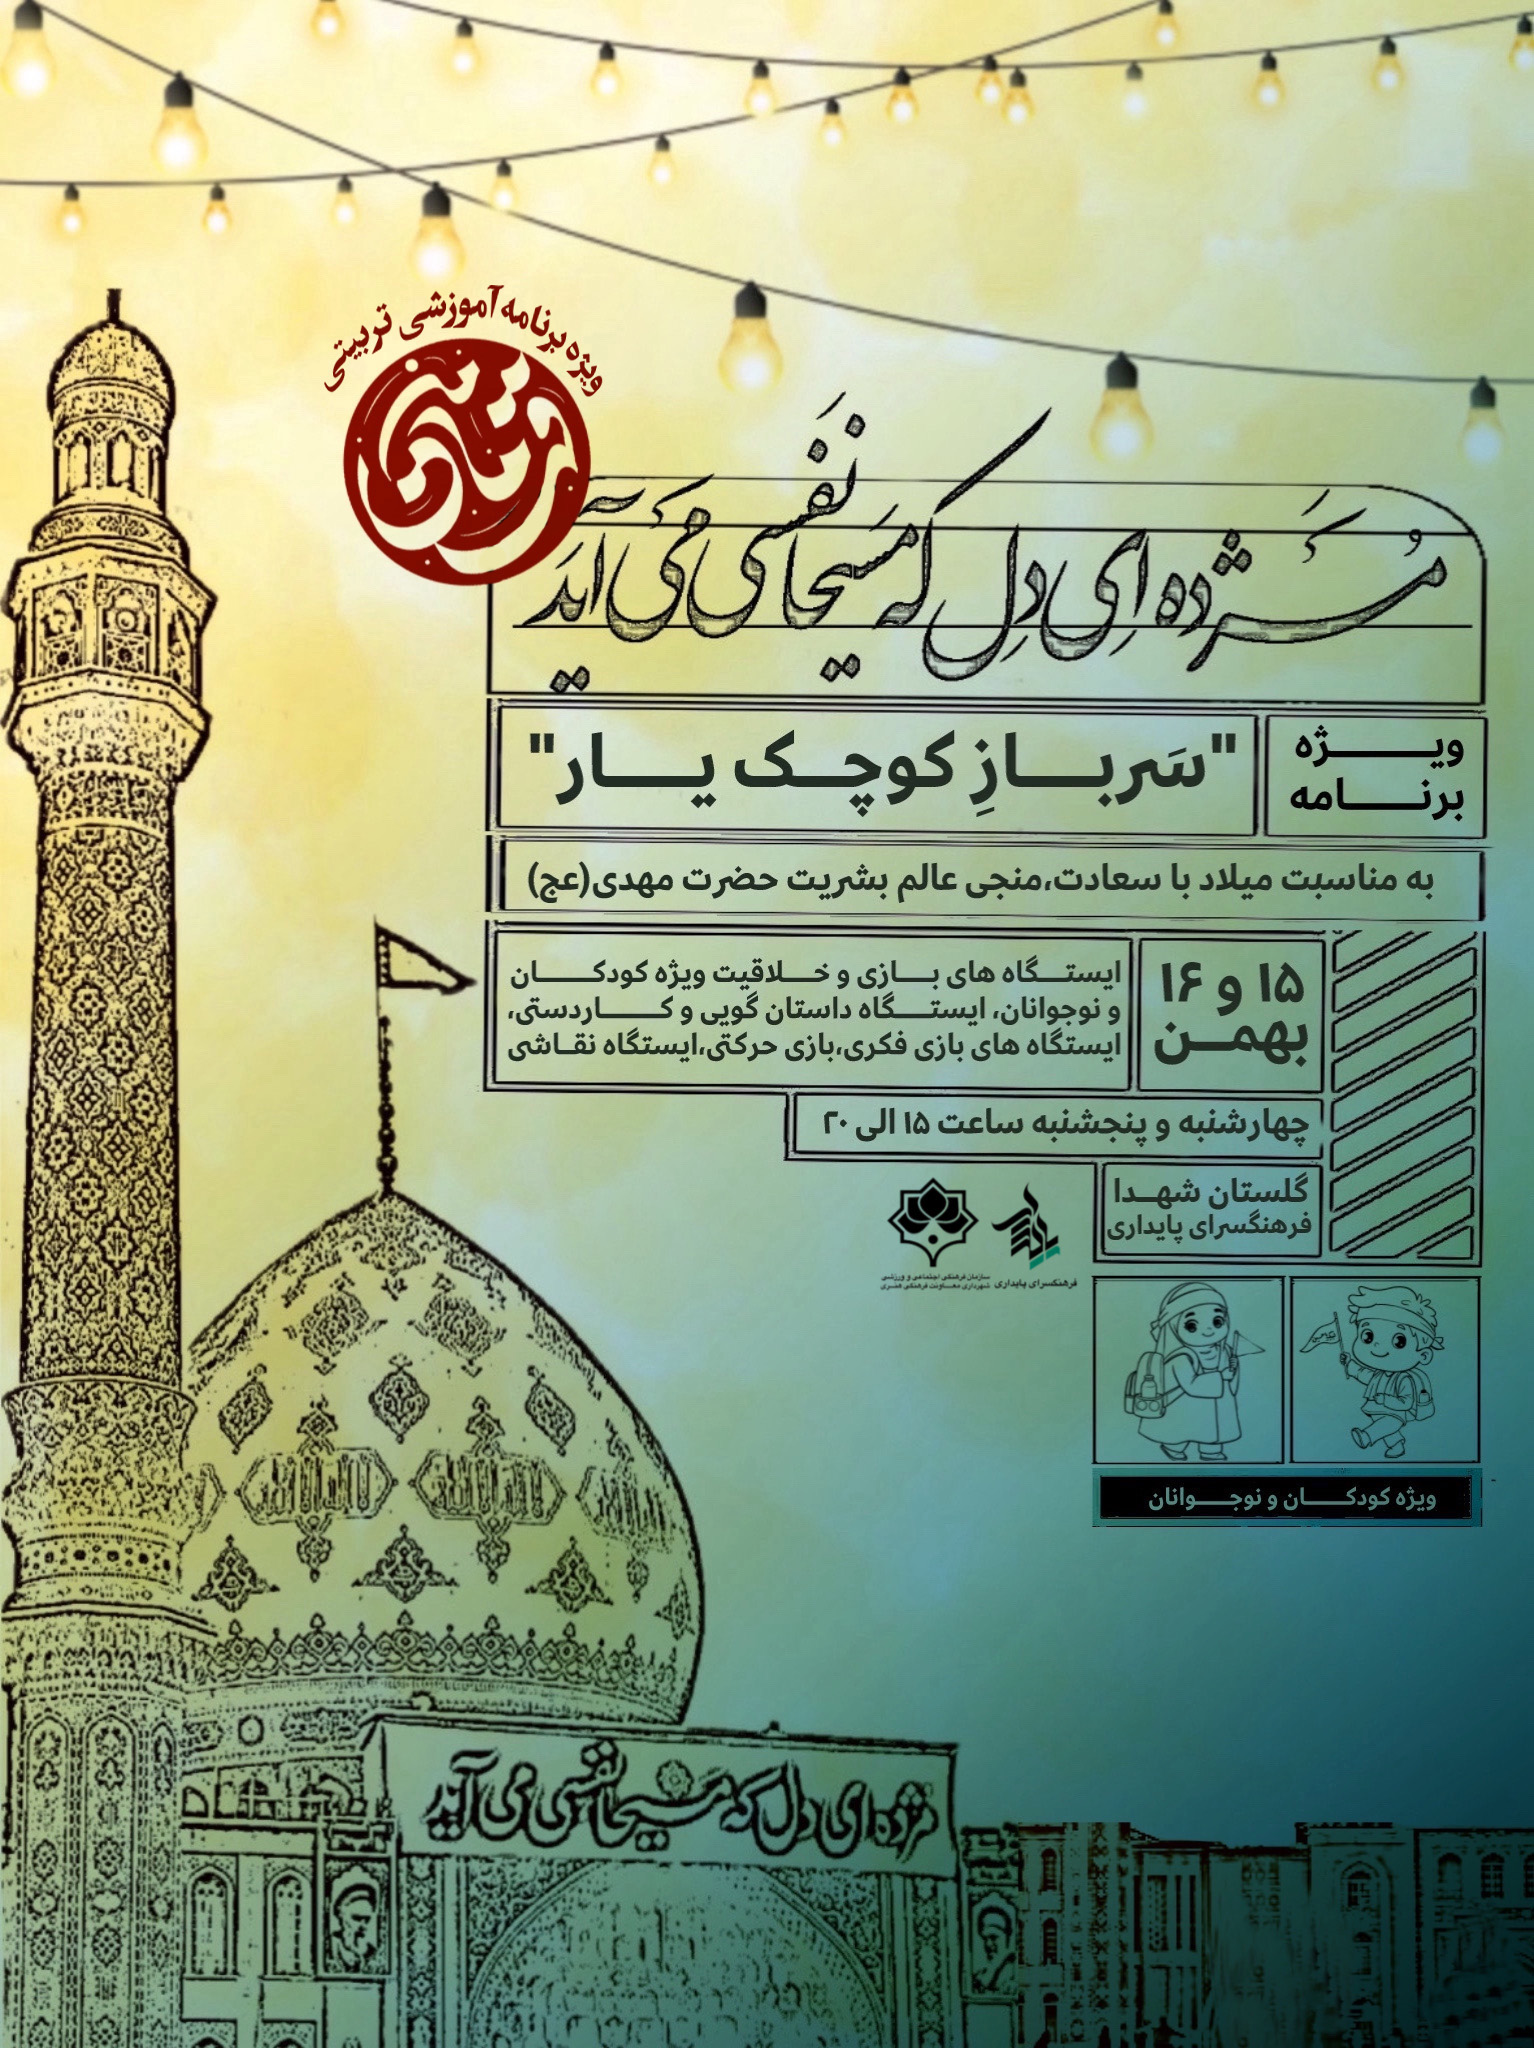 ویژه برنامه آموزشی تربیتی
مُژدَه اِی دِل که مَسیحا نَفَسی مَی آیَد
ویژه برنامه
"سَربازِ کوچک یار"
به مناسبت میلاد با سعادت،منجی عالم بشریت حضرت مهدی(عج)
۱۵ و ۱۶
بهمن
ایستگاه های بازی و خلاقیت ویژه کودکان
و نوجوانان، ایستگاه داستان گویی و کاردستی،
ایستگاه های بازی فکری،بازی حرکتی،ایستگاه نقاشی
چهارشنبه و پنجشنبه ساعت ۱۵ الی ۲۰
گلستان شهدا
فرهنگسرای پایداری
فرهنگسرای پایداری
سازمان فرهنگی اجتماعی و ورزشی
شهرداری معاونت فرهنگی هنری
ویژه کودکان و نوجوانان
مژده ای دل که مسیحا نفسی می آید